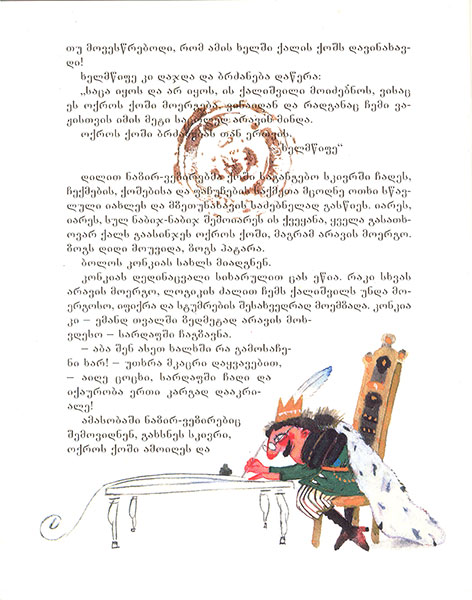 თუ მოვესწრებოდი, რომ ამის ხელში ქალის ქოშს დავინახავ-
დი!
ხელმწიფე კი დაჯდა და ბრძანება დაწერა:
„საცა იყოს და არ იყოს, ის ქალიშვილი მოიძებნოს, ვისაც
ეს ოქროს ქოში მოერგება, ვინაიდან და რადგანაც ჩემი ვა-
ჟისთვის იმის მეტი საცოლედ არავინ მინდა.
ოქროს ქოში ბრძანებას თან ერთვის.
ხელმწიფე“
დილით ნაზირ-ვეზირებმა ქოში საგანგებო სკივრში ჩადეს,
ჩექმების, ქოშებისა და ფაჩუჩების საქმეთა მცოდნე ოთხი სწავ-
ლული იახლეს და მზეთუნახავის საძებნელად გასწიეს. იარეს,
იარეს, სულ ნაბიჯ-ნაბიჯ შემოიარეს ის ქვეყანა, ყველა გასათხ-
ოვარ ქალს გაასინჯეს ოქროს ქოში, მაგრამ არავის მოერგო.
ზოგს დიდი მოუვიდა, ზოგს პატარა.
ბოლოს კონკიას სახლს მიადგნენ.
კონკიას დედინაცვალი სიხარულით ცას ეწია. რაკი სხვას
არავის მოერგო, ლოგიკის ძალით ჩემს ქალიშვილს უნდა მო-
ერგოსო, იფიქრა და სტუმრების შესახვედრად მოემზადა. კონკია
კი – ემანდ თვალში ზედმეტად არავის მოხ-
ვდესო – სარდაფში ჩაგზავნა.
– აბა შენ ასეთ ხალხში რა გამოსაჩე-
ნი ხარ! – უთხრა მკაცრი დაყვავებით,
– აიღე ცოცხი, სარდაფში ჩადი და
იქაურობა ერთი კარგად დააკრი-
ალე!
ამასობაში ნაზირ-ვეზირებიც
შემოვიდნენ, გახსნეს სკივრი,
ოქროს ქოში ამოიღეს და